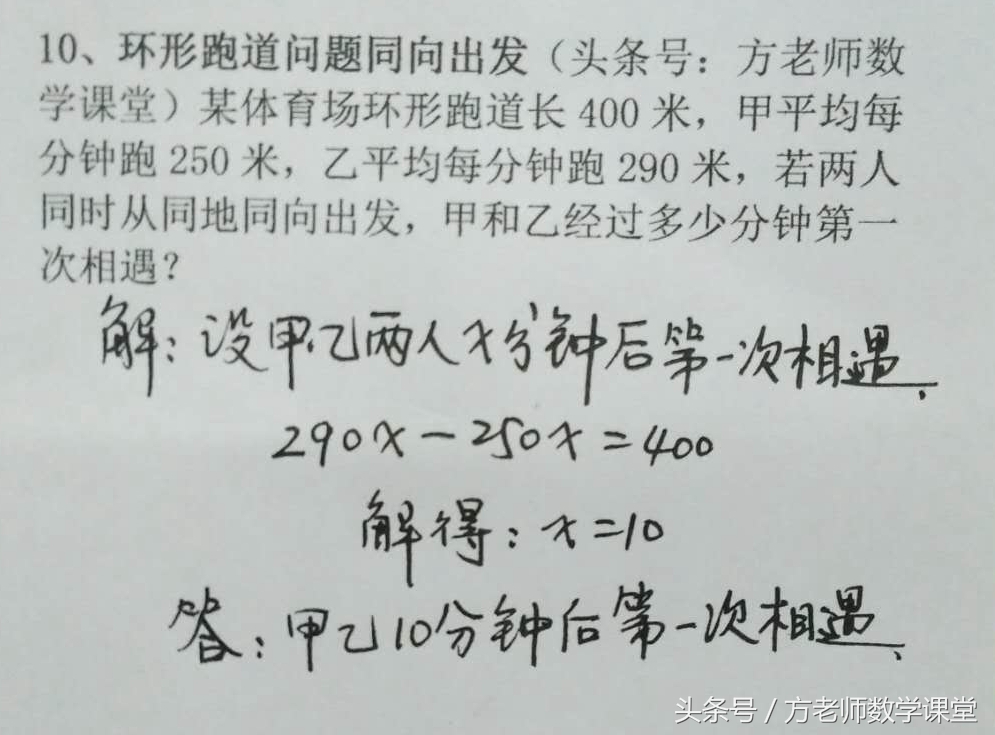 10、环形跑道问题同向出发（头条号：方老师数
学课堂）某体育场环形跑道长 400 米，甲平均每
分钟跑 250 米，乙平均每分钟跑 290 米，若两人
同时从同地同向出发，甲和乙经过多少分钟第一
次相遇？
解：设甲乙两人x分钟后第一次相遇.
290x-250x=400
解得：x=10
答：甲乙10分钟后第一次相遇.
头条号 / 方老师数学课堂